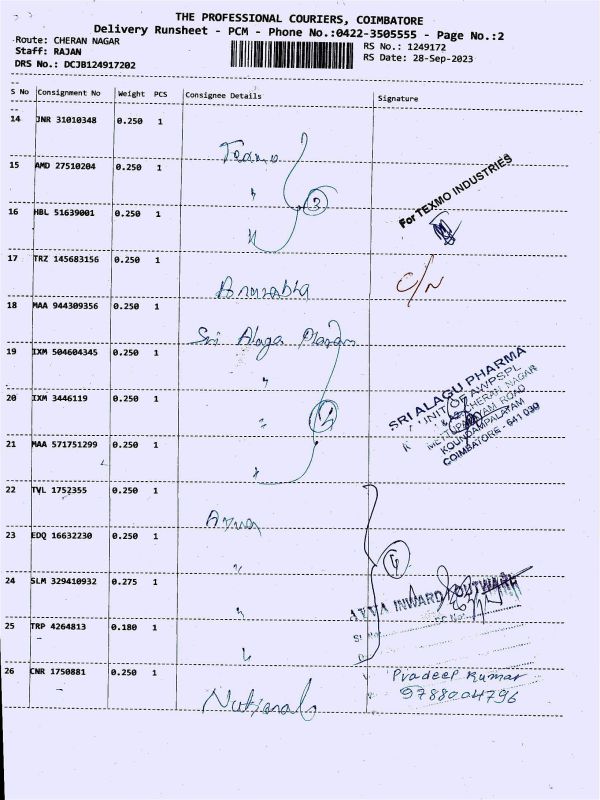 THE PROFESSIONAL COURIERS, COIMBATORE
Delivery Runsheet - PCM - Phone No.:0422-3505555 - Page No.:2
Route: CHERAN NAGAR
RS No.: 1249172
Staff: RAJAN
RS Date: 28-Sep-2023
DRS No.: DCJB124917202
S No Consignment No Weight PCS Consignee Details Signature
14 JNR 31010348 0.250 1 Texmo
15 AMD 27510204 0.250 1 "
3
For TEXMO INDUSTRIES
16 HBL 51639001 0.250 1 "
17 TRZ 145683156 0.250 1
C/N
18 MAA 944309356 0.250 1 Sri Alagu
19 IXM 504604345 0.250 1 "
SRI ALAGU PHARMA
UNIT OF AWPSPL
CHERAN NAGAR
METTUPALAYAM ROAD
KOUNDAMPALAYAM
COIMBATORE - 641 030
20 IXM 3446119 0.250 1 "
21 MAA 571751299 0.250 1 "
22 TVL 1752355 0.250 1
23 EDQ 16632230 0.250 1 "
24 SLM 329410932 0.275 1 "
INWARD
25 TRP 4264813 0.180 1 "
26 CNR 1750881 0.250 1 National
Pradeep Kumar
9788004796